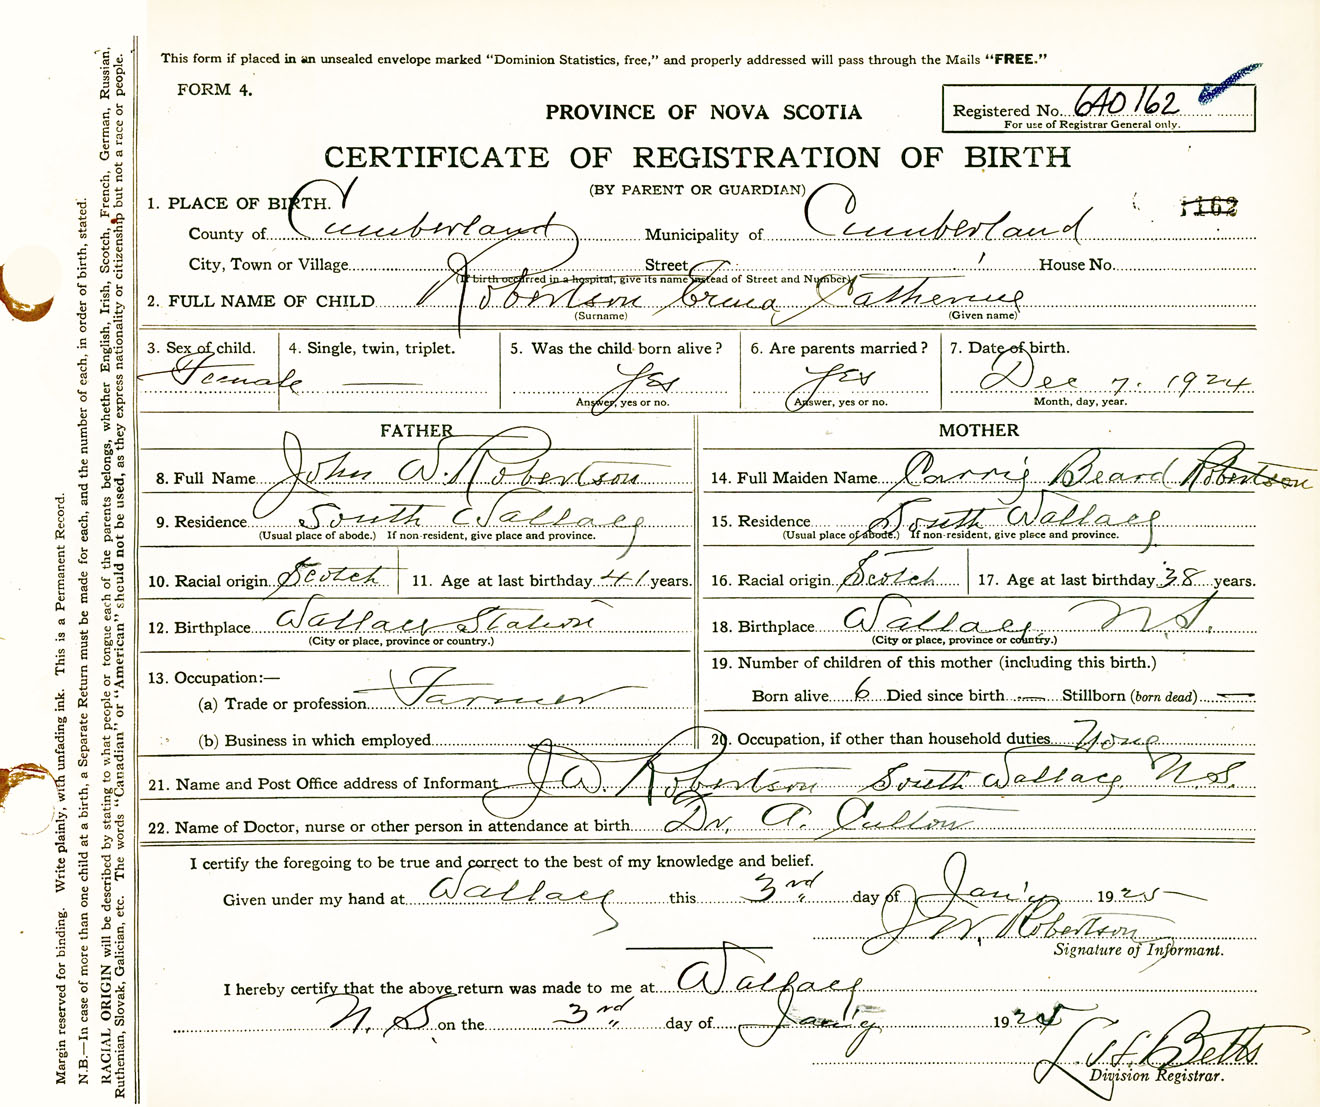 This form if placed in an unsealed envelope marked "Dominion Statistics, free," and properly addressed will pass through the Mails "FREE."
FORM 4.
PROVINCE OF NOVA SCOTIA
Registered No. 6A0162
For use of Registrar General only.
CERTIFICATE OF REGISTRATION OF BIRTH
(BY PARENT OR GUARDIAN)
162
1. PLACE OF BIRTH.
County of Cumberland Municipality of Cumberland
City, Town or Village Street House No.
(If birth occurred in a hospital, give its name instead of Street and Number)
2. FULL NAME OF CHILD Robertson Erma Catherine
(Surname) (Given name)
3. Sex of child. 4. Single, twin, triplet. 5. Was the child born alive? 6. Are parents married? 7. Date of birth.
Female — Yes Yes Dec 7. 1924
Answer, yes or no. Answer, yes or no. Month, day, year.
FATHER MOTHER
8. Full Name John W. Robertson 14. Full Maiden Name Carrie Beard Robertson
9. Residence South Wallace 15. Residence South Wallace
(Usual place of abode.) If non-resident, give place and province. (Usual place of abode.) If non-resident, give place and province.
10. Racial origin Scotch 11. Age at last birthday 41 years. 16. Racial origin Scotch 17. Age at last birthday 38 years.
12. Birthplace Wallace Station 18. Birthplace Wallace N.S.
(City or place, province or country.) (City or place, province or country.)
13. Occupation:— 19. Number of children of this mother (including this birth.)
(a) Trade or profession Farmer Born alive 6 Died since birth — Stillborn (born dead) —
(b) Business in which employed 20. Occupation, if other than household duties None
21. Name and Post Office address of Informant J W. Robertson South Wallace N.S.
22. Name of Doctor, nurse or other person in attendance at birth Dr. A. Cullon
I certify the foregoing to be true and correct to the best of my knowledge and belief.
Given under my hand at Wallace this 3rd day of Jan'y 1925
J W. Robertson
Signature of Informant.
I hereby certify that the above return was made to me at Wallace
N. S on the 3rd day of Jan'y 1925
L. H. Betts
Division Registrar.
Margin reserved for binding. Write plainly, with unfading ink. This is a Permanent Record.
N.B.—In case of more than one child at a birth, a Separate Return must be made for each, and the number of each, in order of birth, stated.
RACIAL ORIGIN will be described by stating to what people or tongue each of the parents belongs, whether English, Irish, Scotch, French, German, Russian,
Ruthenian, Slovak, Galician, etc. The words "Canadian" or "American" should not be used, as they express nationality or citizenship but not a race or people.